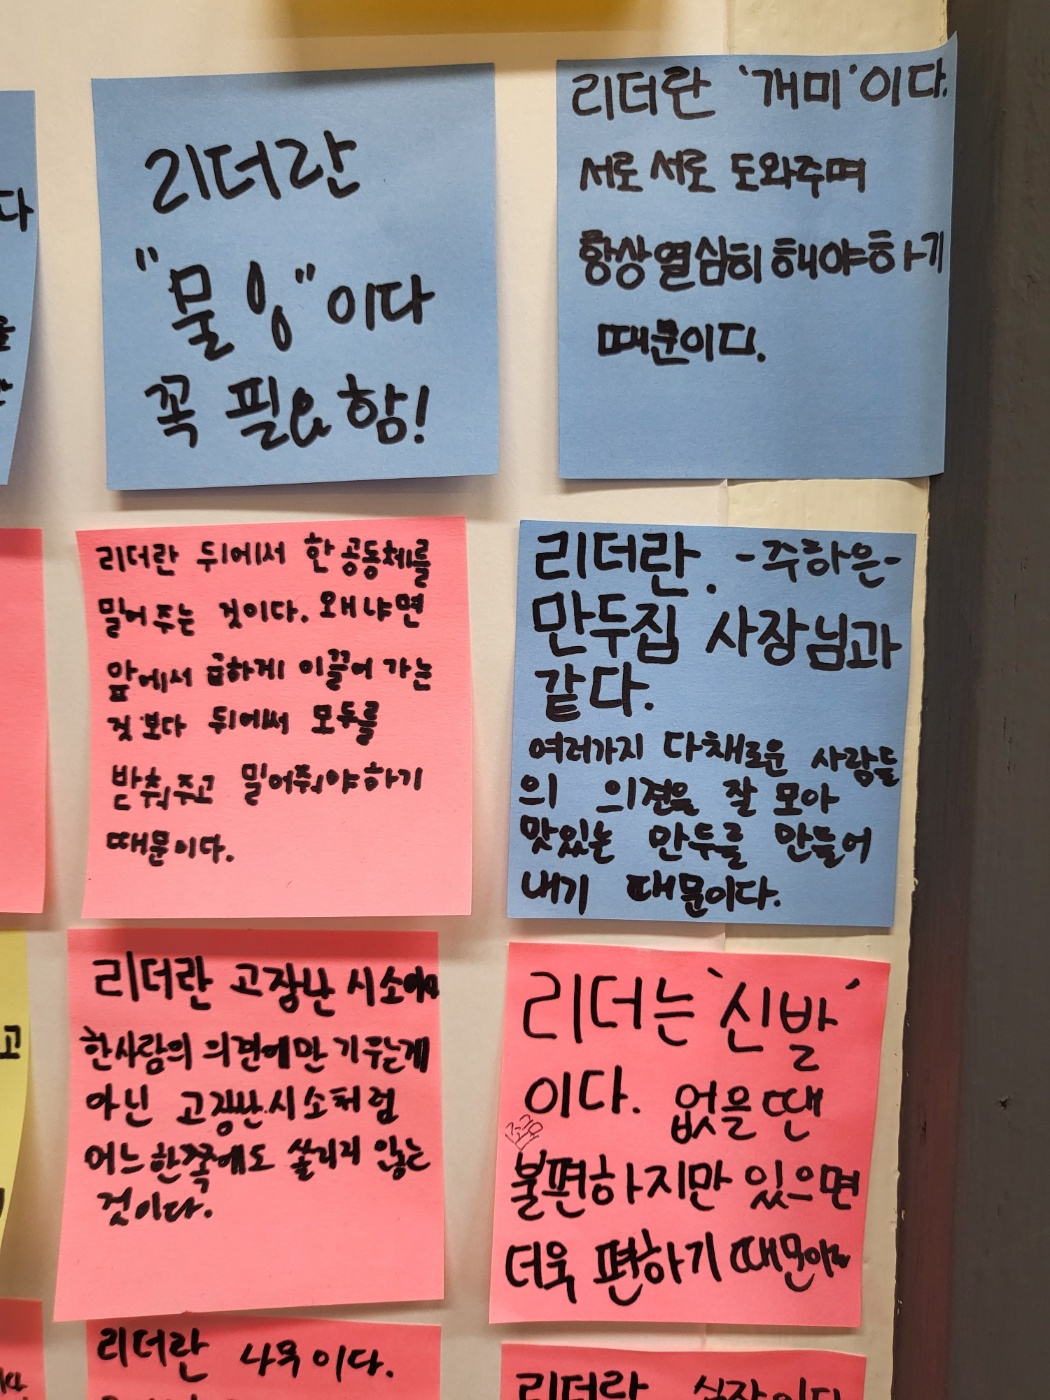 리더란
"물잉"이다
꼭 필요함!
리더란 '개미'이다.
서로 서로 도와주며
항상 열심히 해야하기
때문이다.
리더란 뒤에서 한 공동체를
밀어 주는 것이다. 왜냐면
앞에서 급하게 이끌어 가는
것 보다 뒤에서 모두를
받춰주고 밀어줘야하기
때문이다.
리더란. -주하은-
만두집 사장님과
같다.
여러가지 다채로운 사람들
의 의견을 잘 모아
맛있는 만두를 만들어
내기 때문이다.
리더란 고장난 시소
한사람의 의견에만 기우는게
아닌 고장난시소처럼
어느한쪽에도 쏠리지 않는
것이다.
리더는 '신발'
이다. 없을 땐
불편하지만 있으면
더욱 편하기 때문
리더란 나무이다.
리더란
다
고